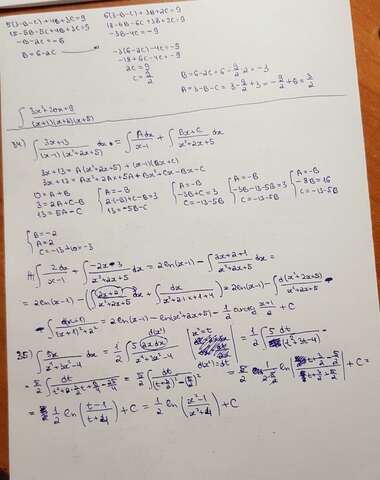 5(3-B-C)+4B+3C=9
15-5B-5C+4B+3C=9
-B-2C=-6
B=6-2C
6(3-B-C)+3B+2C=9
18-6B-6C+3B+2C=9
-3B-4C=-9
-3(6-2C)-4C=-9
-18+6C-4C=-9
2C=9
C=9/2
B=6-2C=6-9/2·2=-3
A=3-B-C=3-9/2+3=-9/2+6=3/2
∫ 3x²+20x+9 / (x+1)(x+2)(x+5)
34) ∫ 3x+13 / (x-1)(x²+2x+5) dx = ∫ A dx / x-1 + ∫ Bx+C / x²+2x+5 dx
3x+13=A(x²+2x+5)+(x-1)(Bx+C)
3x+13=Ax²+2Ax+5A+Bx²+Cx-Bx-C
{0=A+B
3=2A+C-B
13=5A-C
{A=-B
2(-B)+C-B=3
13=-5B-C
{A=-B
-3B+C=3
C=-13-5B
{A=-B
-3B-13-5B=3
C=-13-5B
{A=-B
-8B=16
C=-13-5B
{B=-2
A=2
C=-13+10=-3
∫ 2dx / x-1 + ∫ -2x-3 / x²+2x+5 dx = 2ln(x-1) - ∫ 2x+2+1 / x²+2x+5 dx =
= 2ln(x-1) - (∫ 2x+2 / x²+2x+5 dx + ∫ dx / x²+2x+1+4) = 2ln(x-1) - ∫ d(x²+2x+5) / x²+2x+5 -
- ∫ d(x+1) / (x+1)²+2² = 2ln(x-1) - ln(x²+2x+5) - 1/2 arctg x+1 / 2 + C
35) ∫ 5x / x⁴+3x²-4 dx = 1/2 ∫ 5·2x dx / x⁴+3x²-4
d(x²)
x²=t
d(x²)=dt
= 1/2 ∫ 5 dt / (t²+3t-4) =
= 5/2 ∫ dt / t²+2·3/2·t+9/4-25/4 = 5/2 ∫ dt / (t+3/2)²-(5/2)² = 5/2 · 1 / 2·5/2 ln | t+3/2-5/2 / t+3/2+5/2 | + C =
= 1/2 ln (t-1 / t+4) + C = 1/2 ln (x²-1 / x²+4) + C